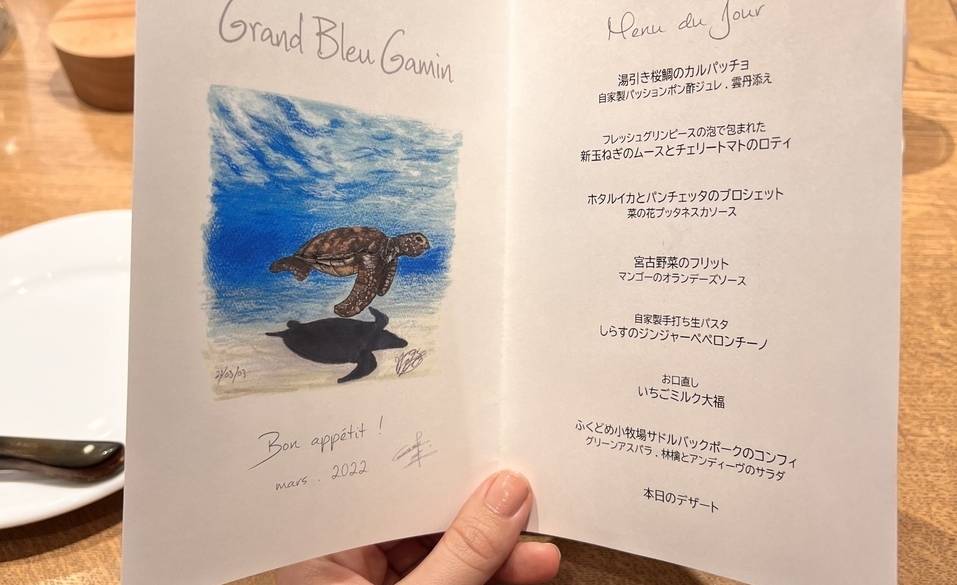 Grand Bleu Gamin
21/03/03
Bon appétit !
mars . 2022
Menu du Jour
湯引き桜鯛のカルパッチョ
自家製パッションポン酢ジュレ . 雲丹添え
フレッシュグリンピースの泡で包まれた
新玉ねぎのムースとチェリートマトのロティ
ホタルイカとパンチェッタのブロシェット
菜の花プッタネスカソース
宮古野菜のフリット
マンゴーのオランデーズソース
自家製手打ち生パスタ
しらすのジンジャーペペロンチーノ
お口直し
いちごミルク大福
ふくどめ小牧場サドルバックポークのコンフィ
グリーンアスパラ . 林檎とアンディーヴのサラダ
本日のデザート